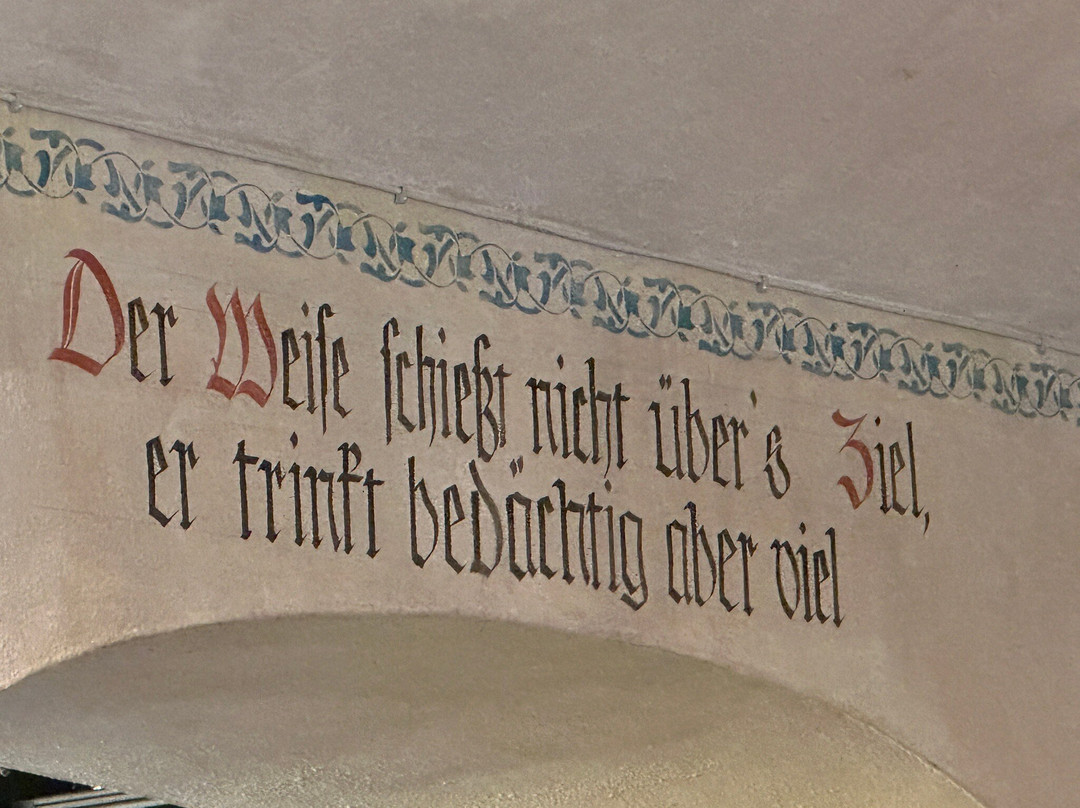 Der Weiſe ſchießt nicht über's Ziel,
er trinkt bedächtig aber viel